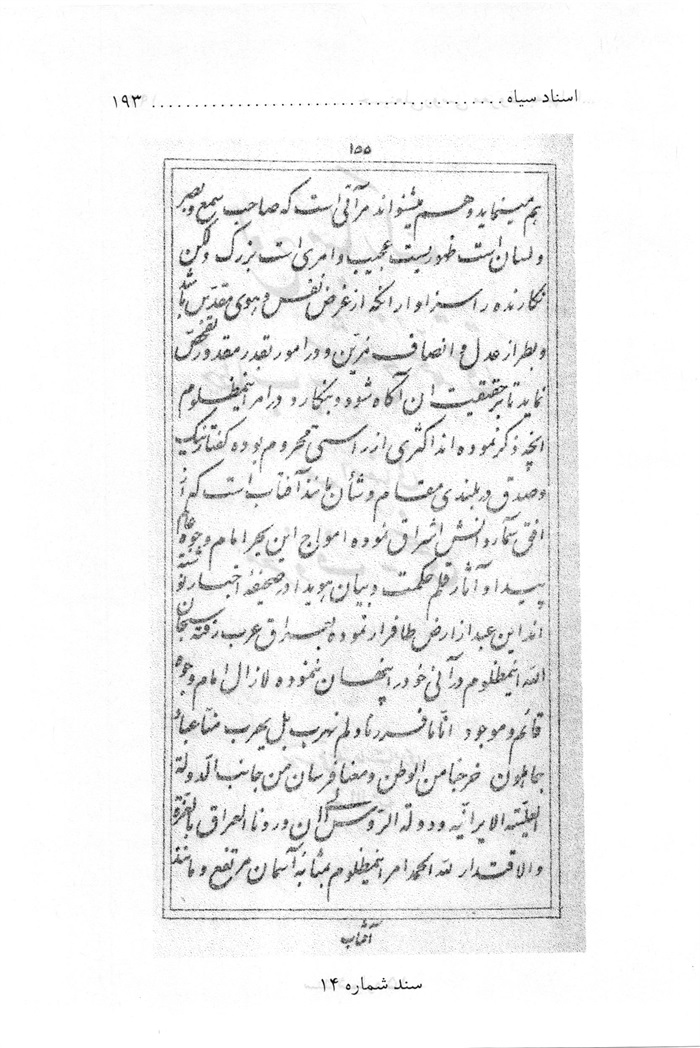 اسناد سیاه ........................................ ۱۹۳
۱۵۵
هم مینماید و هم میشنواند مرآتی است که صاحب سمع و بصر
و لسان است ظهوریست عجیب و امری است بزرگ ولکن
نگارنده را سزاوار آنکه از غرض نفس و هوی مقدس باشد
و بطراز عدل و انصاف مزیّن و در امور بقدر مقدور تفحص
نماید تا بر حقیقت آن آگاه شود و بنگارد در امر اینمظلوم
آنچه ذکر نموده اند اکثری از راستی محروم بوده گفتار نیک
و صدق در بلندی مقام و شأن مانند آفتاب است که از
افق سماء دانش اشراق نموده امواج این بحر امام وجوه عالم
پیدا و آثار قلم حکمت و بیان هویدا در صحیفهٔ اخبار نوشته
اند این عبد از ارض طا فرار نموده بعراق عرب رفته سبحان
الله اینمظلوم در آنی خود را پنهان ننموده لازال امام وجوه
قائم و موجود انّا ما فررنا و لم نهرب بل یهرب منّا عباد
جاهلون خرجنا من الوطن و معنا فرسان من جانب الدولة
العلیّة الایرانیّه و دولة الرّوس الی ان وردنا العراق بالعزّة
والاقتدار لله الحمد امر اینمظلوم بمثابهٔ آسمان مرتفع و مانند
آفتاب
سند شماره ۱۴